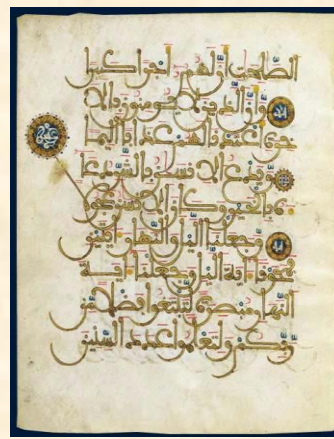 الصلحت أن لهم أجرا كبيرا
وأن الذين لا يومنون بالا
خرة أعتدنا لهم عذابا أليما
ويدع الانسن بالشر دعا
ءه بالخير وكان الانسن عجولا
وجعلنا اليل والنهار ءايتين
فمحونا ءاية اليل وجعلنا ءاية
النهار مبصرة لتبتغوا فضلا من
ربكم ولتعلموا عدد السنين